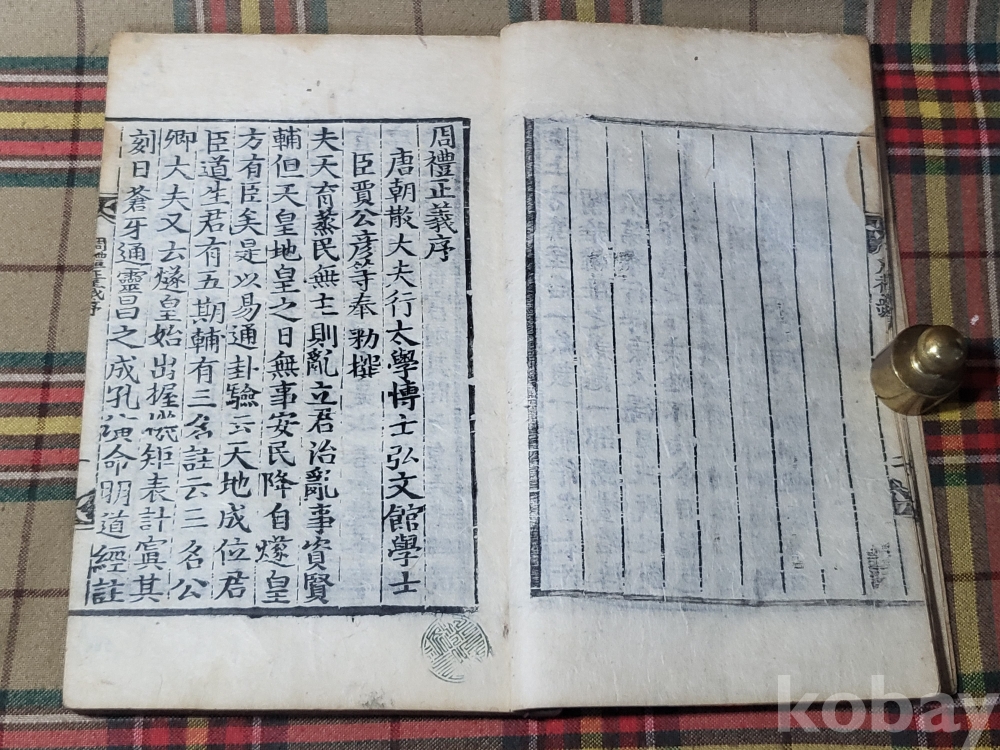 周禮正義序
唐朝散大夫行太學博士弘文館學士
臣賈公彦等奉勑撰
夫天育蒸民無主則亂立君治亂事資賢
輔但天皇地皇之日無事安民降自燧皇
方有臣矣是以易通卦驗云天地成位君
臣道生君有五期輔有三名註云三名公
卿大夫又云燧皇始出握機矩表計寘其
刻曰蒼牙通靈昌之成孔演命明道經註
kobay